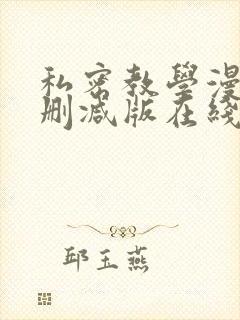 私密教學漫
刪减版在綫
邱玉燕